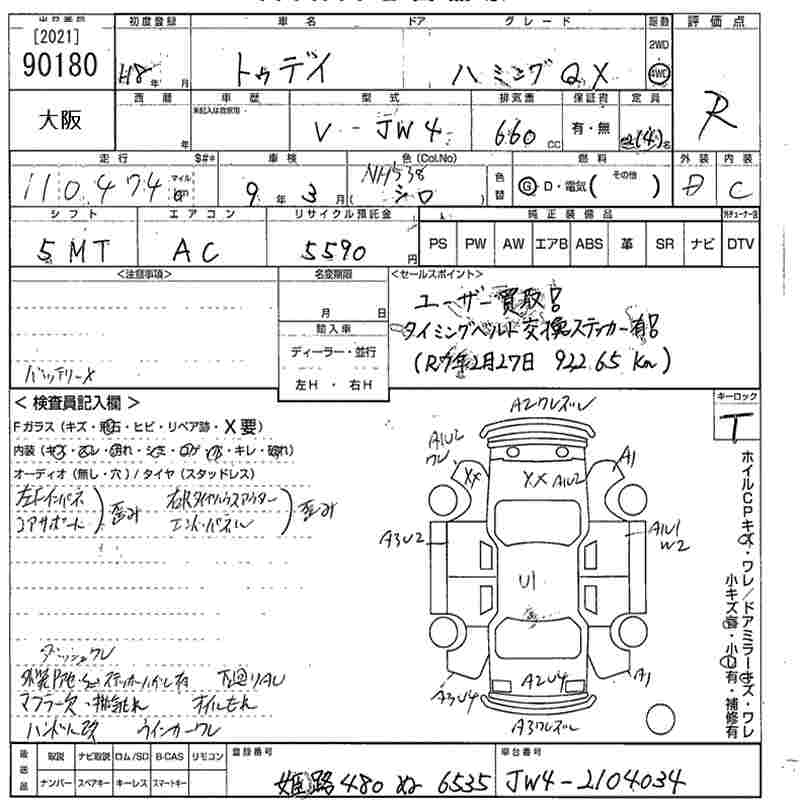 [2021]
90180
大阪
初度登録 車名 ドア グレード 駆動 評価点
H8 年 月 トゥデイ ハミング QX 2WD 4WD R
西暦 車歴 型式 排気量 保証書 定員
年 V - JW4 660 CC 有・無 (4) 名
走行 $#* 車検 色(Col.No) 燃料 外装 内装
110,474 マイル km 9 年 3 月 NH538 シロ 色替 G・D・電気( その他 ) D C
シフト エアコン リサイクル預託金 純正装備品
5MT AC 5590 円 PS PW AW エアB ABS 革 SR ナビ DTV
<注意事項> 名変期限 <セールスポイント>
月 日 ユーザー買取!
輸入車 タイミングベルト交換ステッカー有!
ディーラー・並行 (R7年2月27日 92265 Km)
バッテリーX 左H・右H
<検査員記入欄> キーロック
T
Fガラス(キズ・飛石・ヒビ・リペア跡・X要)
内装(キズ・ヨゴレ・切れ・シミ・コゲ・穴・キレ・破れ)
オーディオ(無し・穴)/タイヤ(スタッドレス)
左Fインパネ コアサポート 歪み 右Rタイヤハウスアウター エンドパネル 歪み
ダッシュワレ
下廻りサビ
マフラー穴・排気もれ オイルもれ
ハンドル改 ウインカーワレ
A2ワレズレ
A1U2 ワレ
XX
XX A1U2
A1
A3U2
A1U1 W2
U1
A3U4
A2U4
A1
A3ワレズレ
ホイルCPキズ・ワレ/ドアミラーキズ・ワレ
小キズ有・小凹有・補修有
後送品 取説 ナビ取説 ロム/SD B-CAS リモコン 登録番号 車台番号
ナンバー スペアキー キーレス スマートキー 姫路 480 ぬ 6535 JW4-2104034